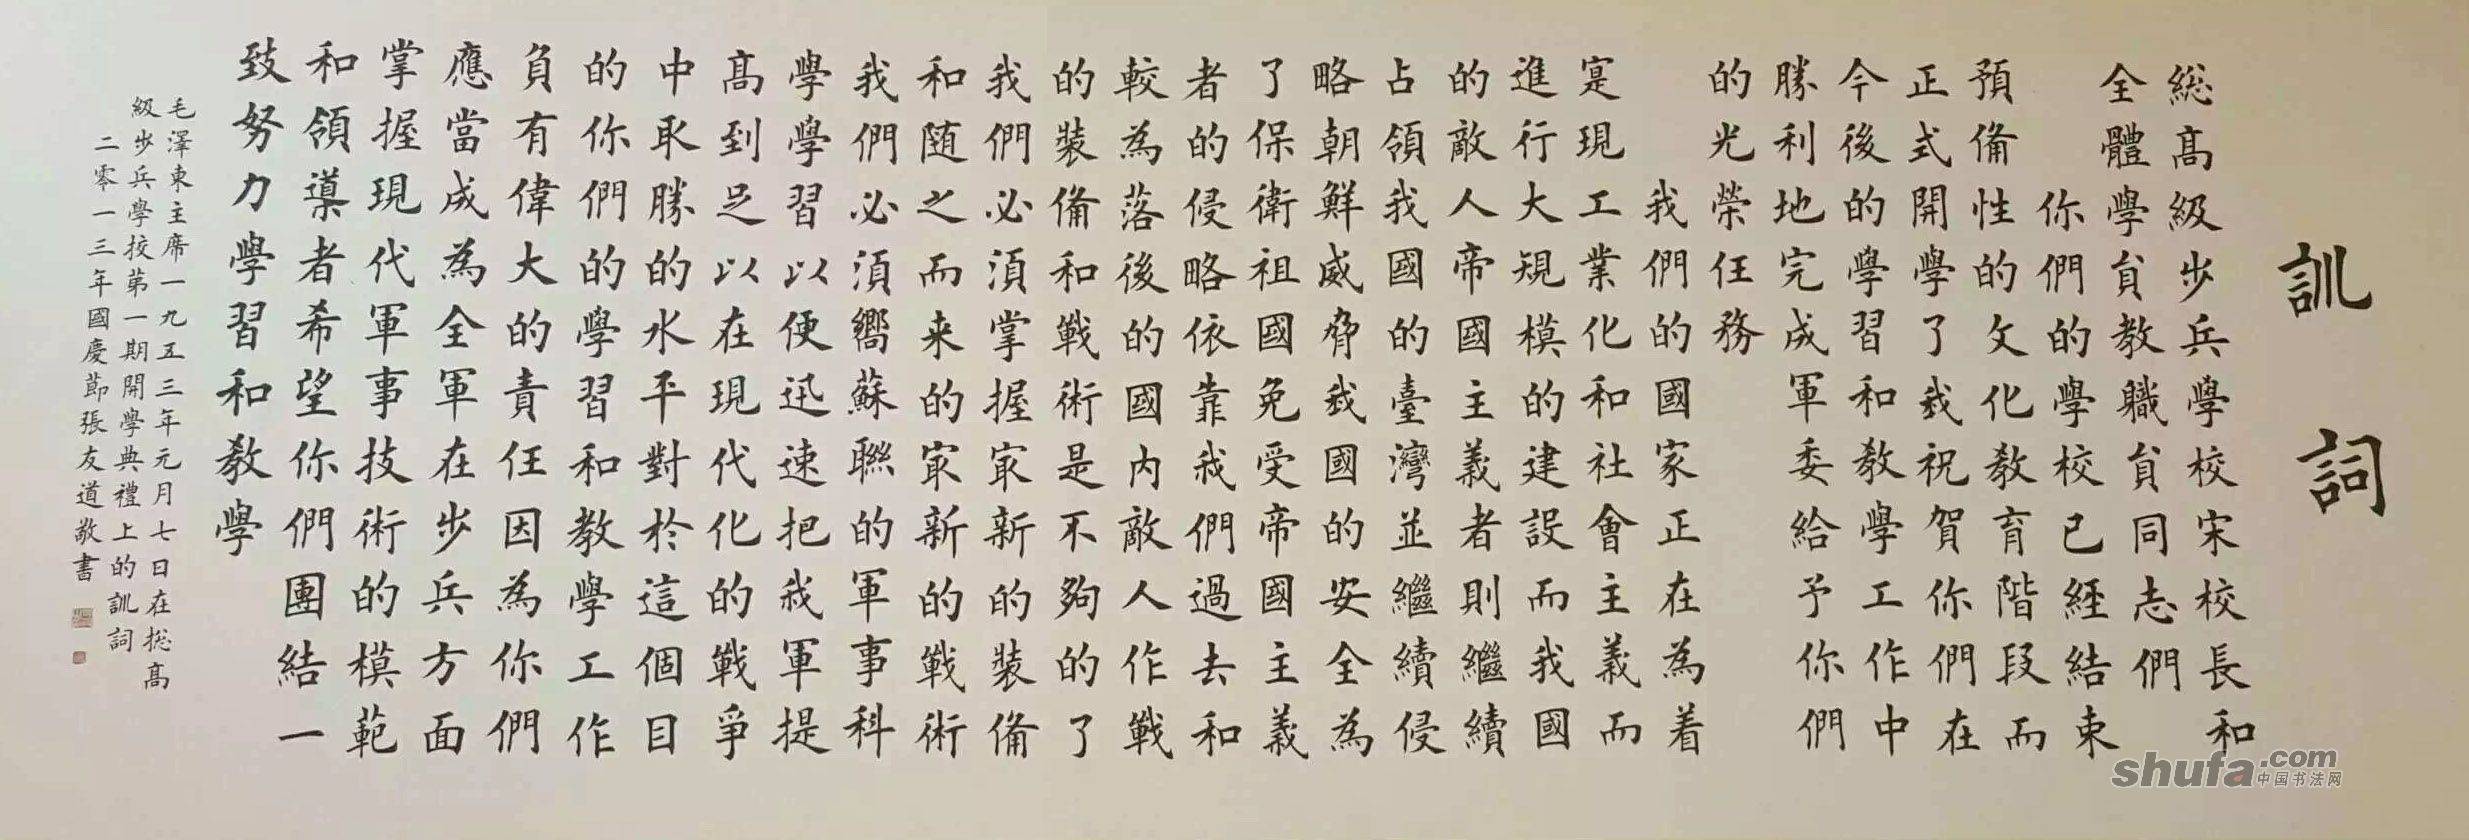 訓詞
総高級步兵學校宋校長和
全體學員教職員同志們
你們的學校已經結束
預備性的文化教育階段而
正式開學了我祝賀你們在
今後的學習和教學工作中
勝利地完成軍委給予你們
的光榮任務
我們的國家正在為着
寔現工業化和社會主義而
進行大規模的建設而我國
的敵人帝國主義者則繼續
占領我國的臺灣並繼續侵
略朝鮮威脅我國的安全為
了保衛祖國免受帝國主義
者的侵略依靠我們過去和
較為落後的國内敵人作戰
的裝備和戰術是不夠的了
我們必須掌握冣新的裝備
和随之而来的冣新的戰術
我們必須嚮蘇聯的軍事科
學學習以便迅速把我軍提
高到足以在現代化的戰爭
中取勝的水平對於這個目
的你們的學習和教學工作
負有偉大的責任因為你們
應當成為全軍在步兵方面
掌握現代軍事技術的模範
和領導者希望你們團結一
致努力學習和教學
毛澤東主席一九五三年元月七日在総高
級步兵學校第一期開學典禮上的訓詞
二零一三年國慶節張友道敬書
shufa.com
中国书法网